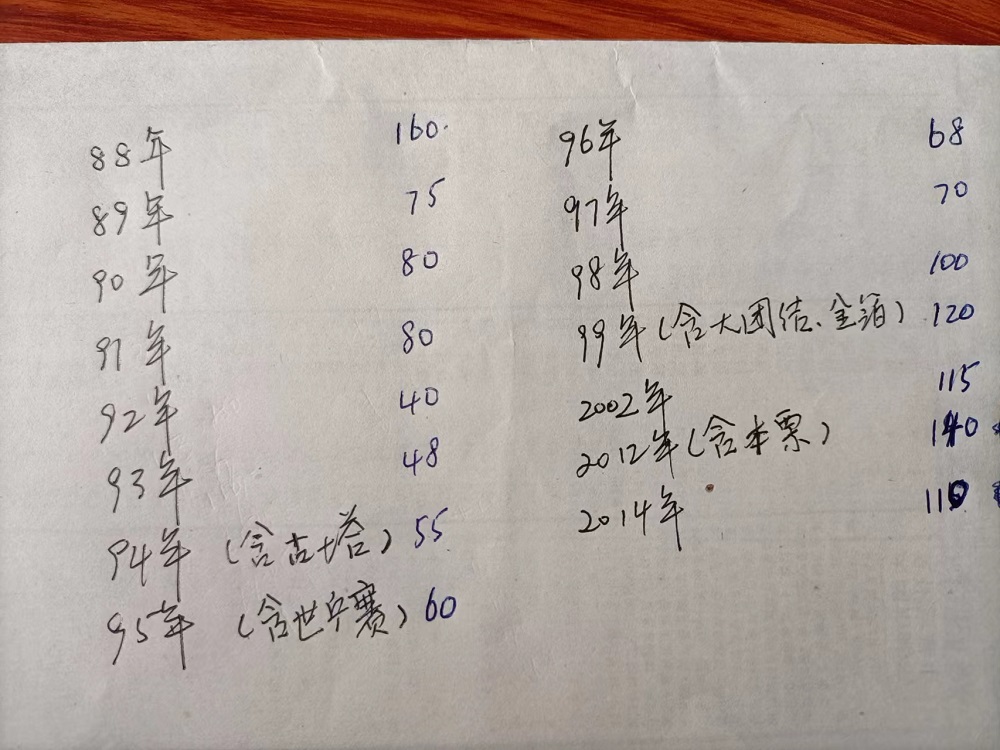 88年 160.
89年 75
90年 80
91年 80
92年 40
93年 48
94年(含古塔) 55
95年(含世乒赛) 60
96年 68
97年 70
98年 100
99年(含大团结、金箔) 120
2002年 115
2012年(含本票) 140
2014年 110